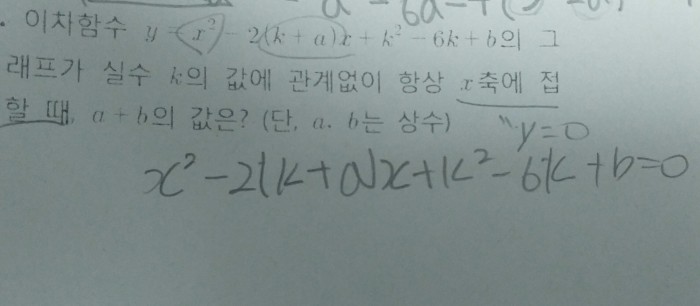 이차함수 y = x² - 2(k + a)x + k² - 6k + b의 그
래프가 실수 k의 값에 관계없이 항상 x축에 접
할 때, a + b의 값은? (단, a, b는 상수)
y=0
x²-2(k+a)x+k²-6k+b=0